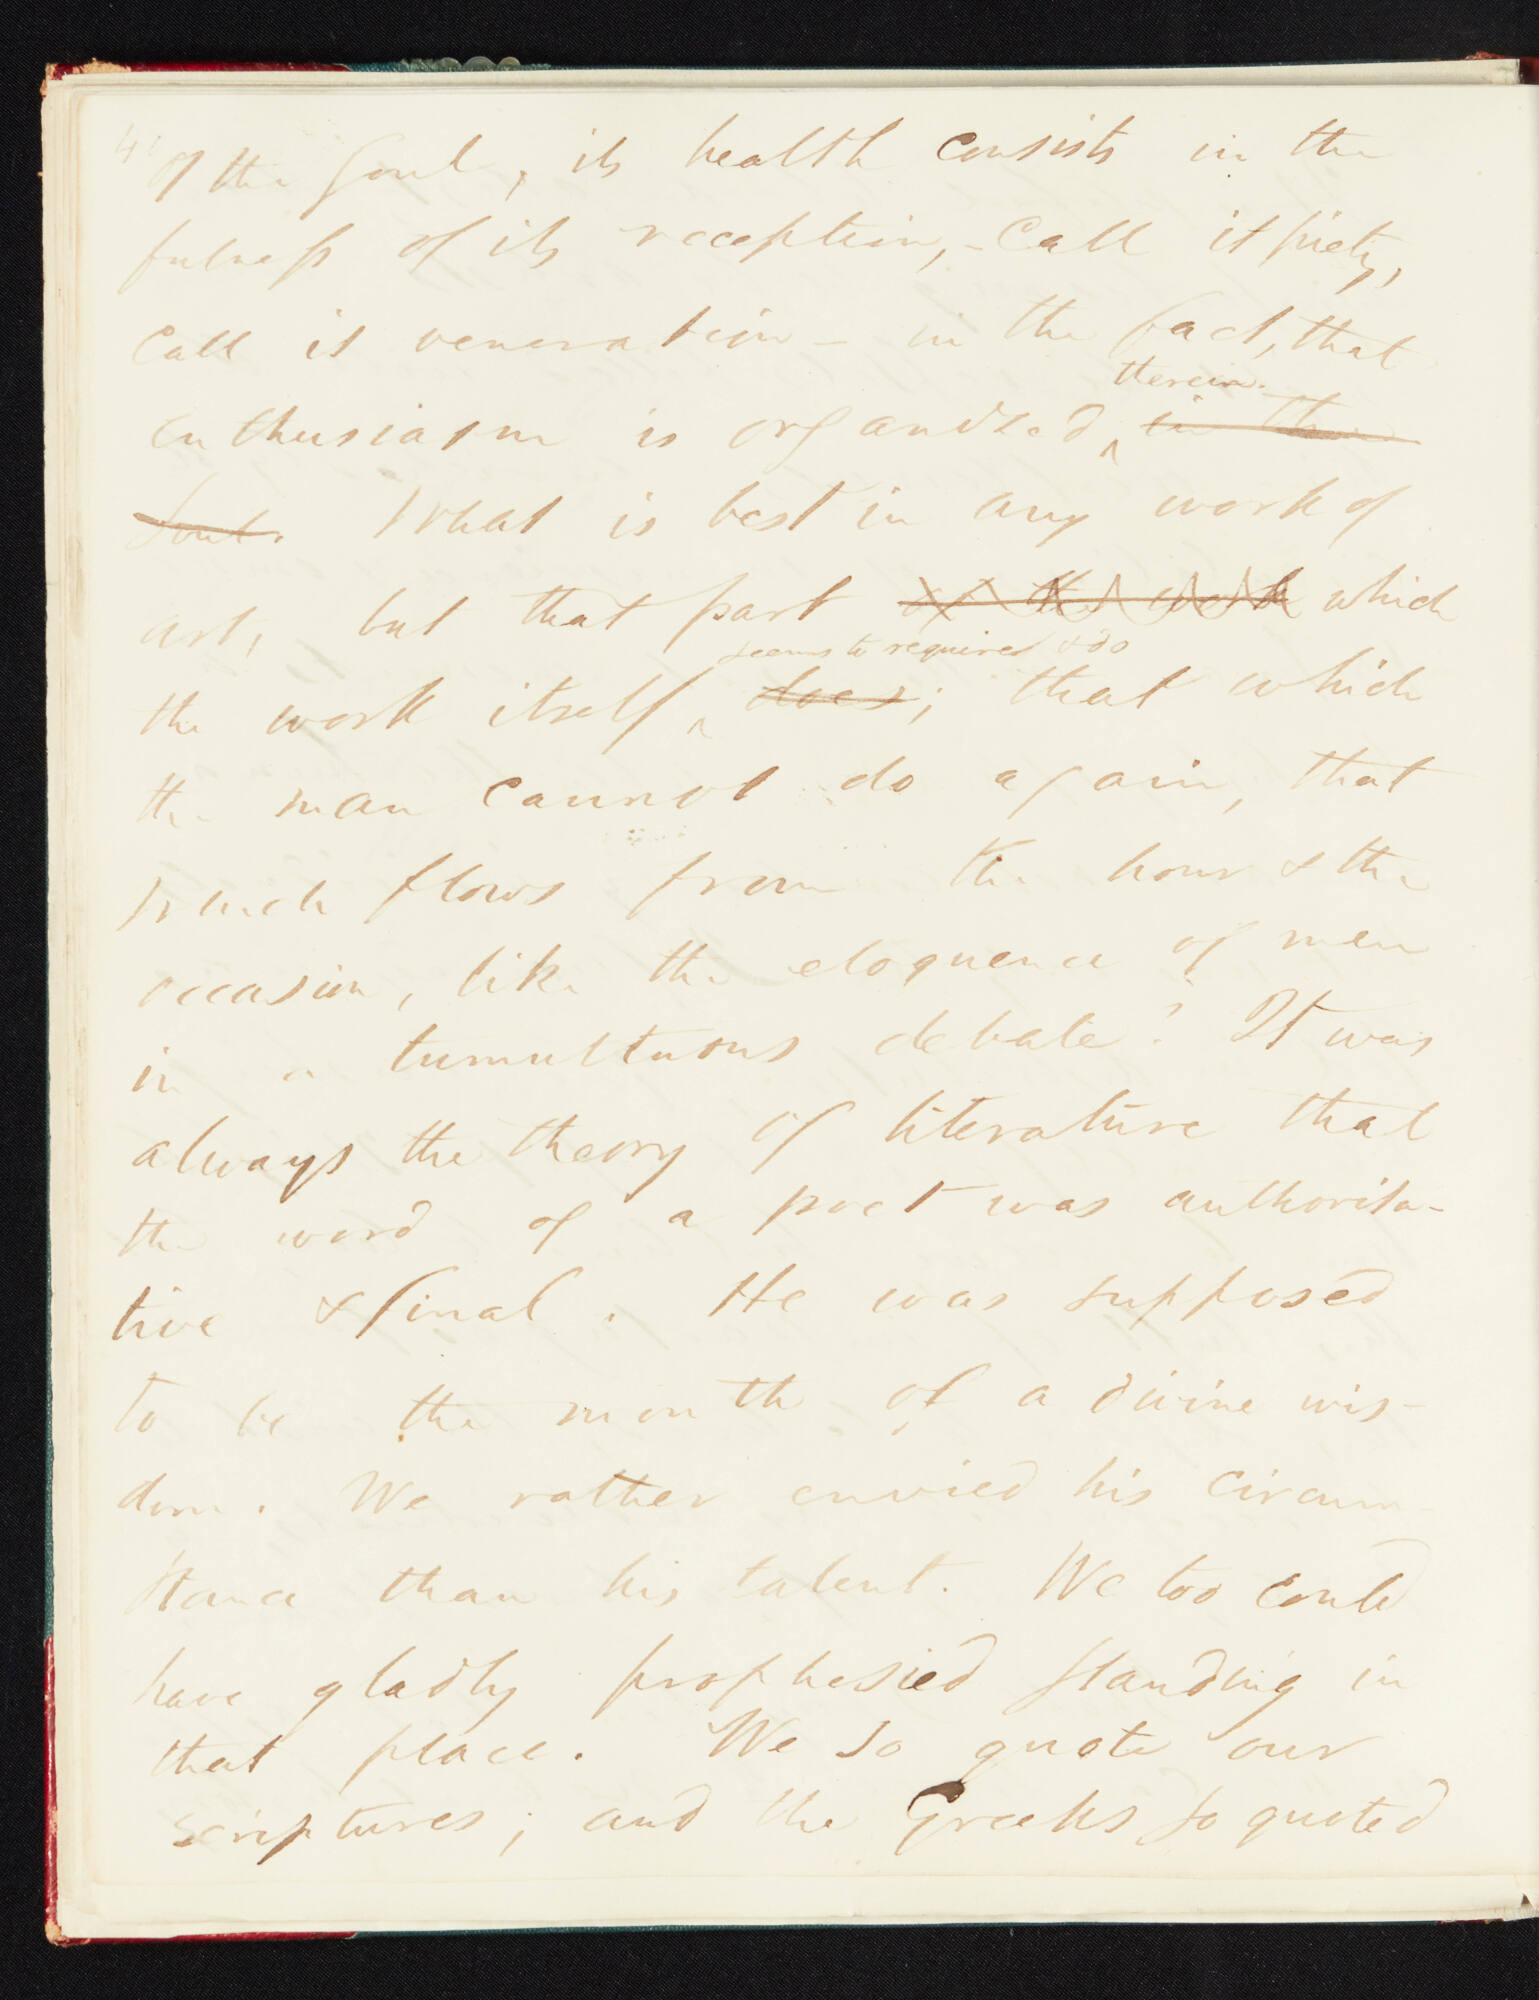 of the Soul, its health consists in the
fulness of its reception, – call it piety,
call it veneration – in the fact, that
therein.
enthusiasm is organized ‸ in the
Soul. What is best in any work of
art, but that part of the work which
seems to require & do
the work itself ‸ does; that which
the man cannot do again, that
which flows from the hour & the
occasion, like the eloquence of men
in a tumultuous debate? It was
always the theory of literature that
the word of a poet was authorita-
tive & final. He was supposed
to be the mouth of a divine wis-
dom. We rather envied his circum-
stance than his talent. We too could
have gladly prophesied standing in
that place. We so quote our
Scriptures; and the Greeks so quoted